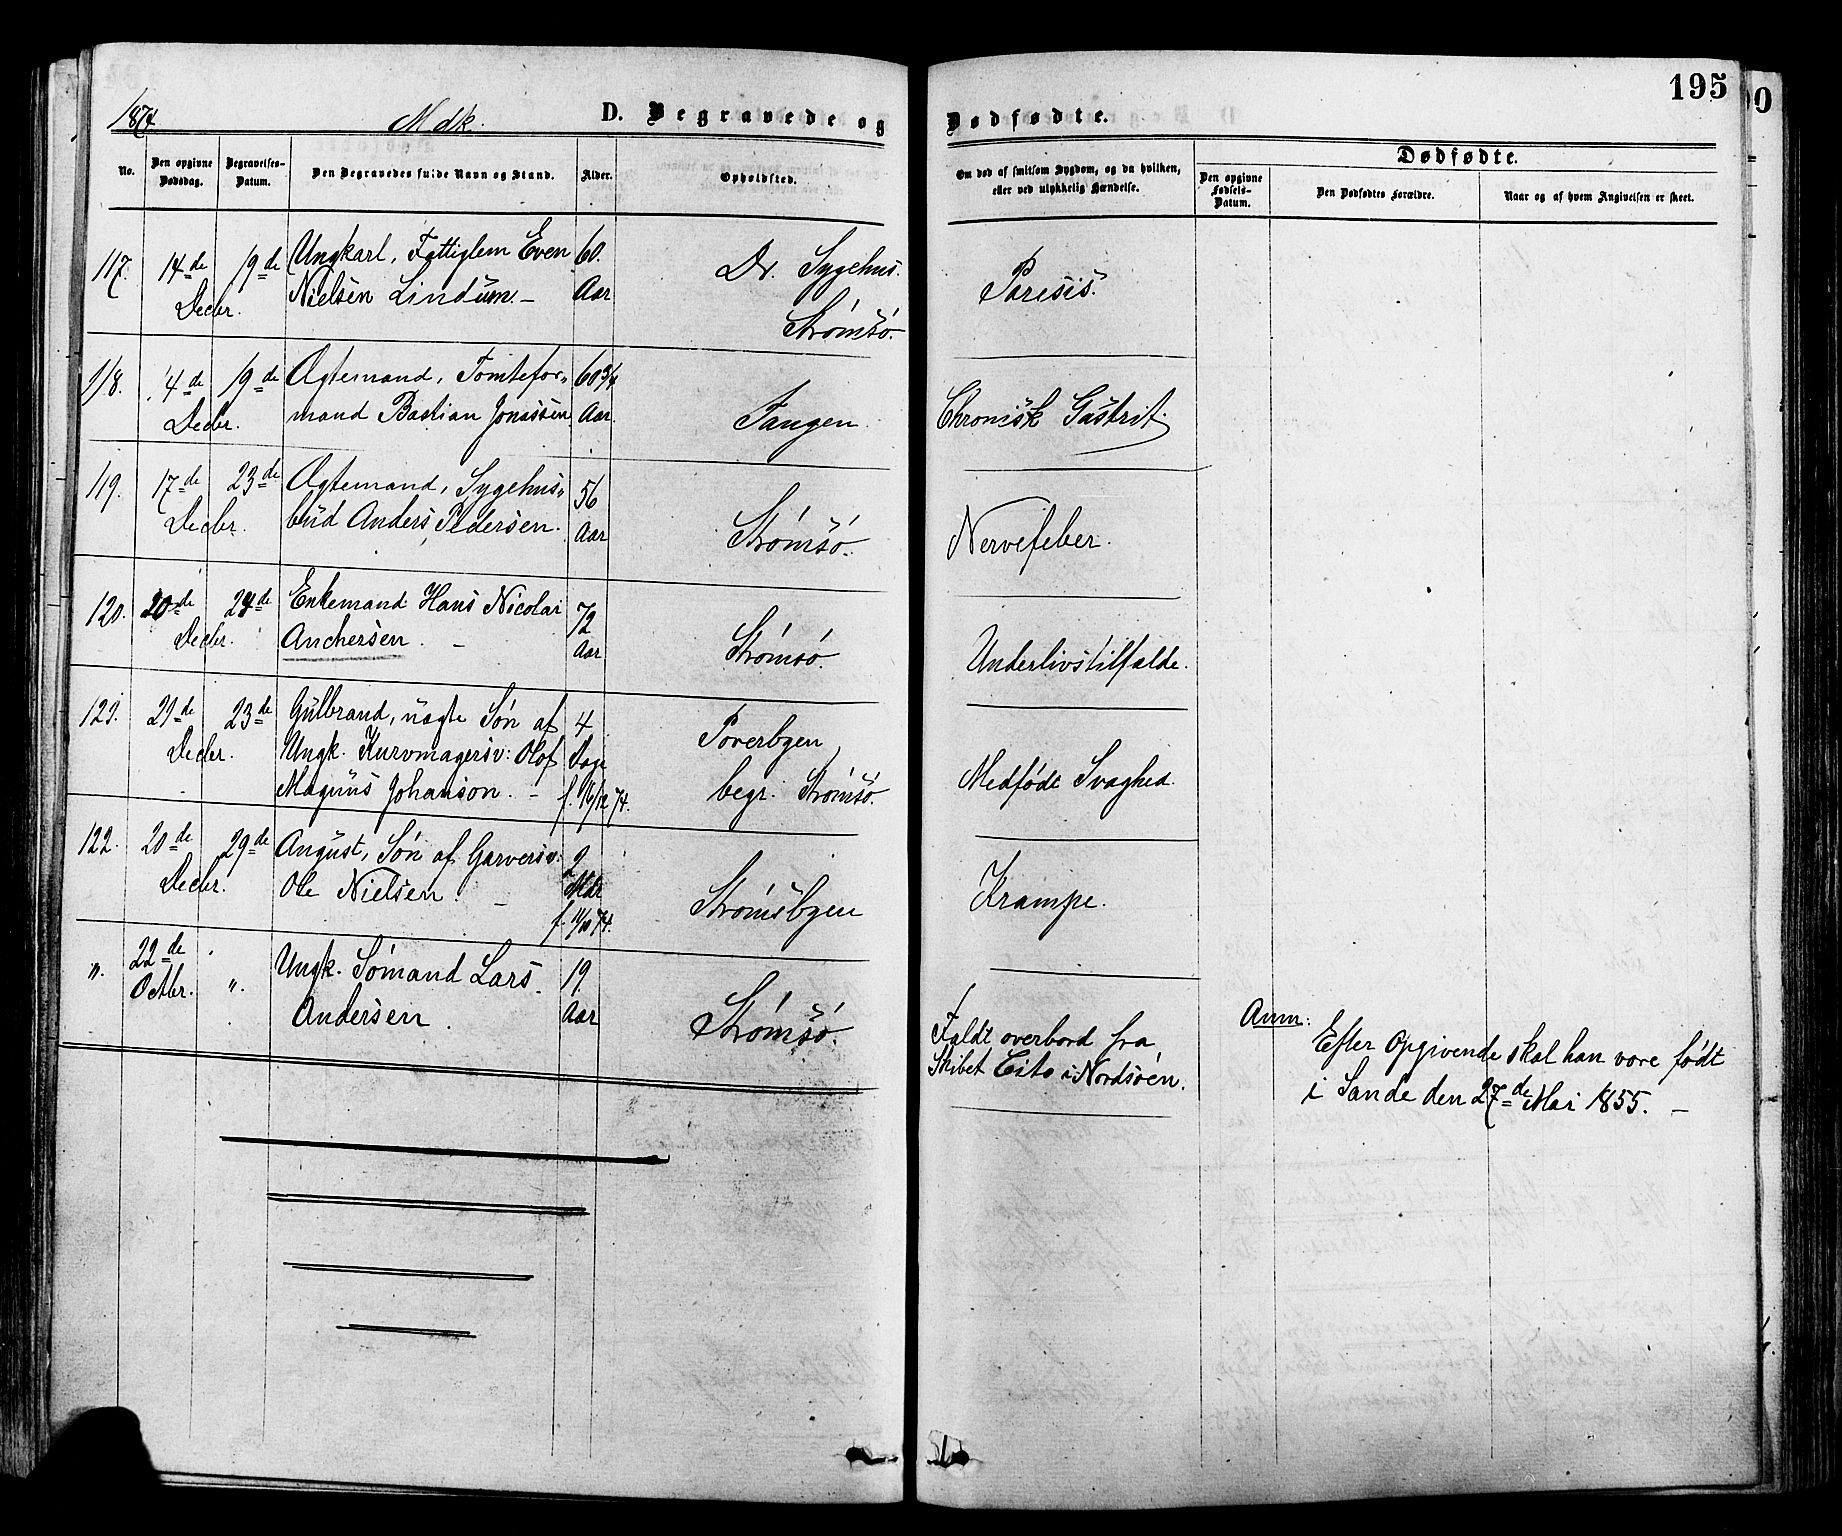 195
1874.
Mdk.
D. Begravede og
Dødfødte.
No.
Den opgivne Dødsdag.
Begravelses-Datum.
Den Begravedes fulde Navn og Stand.
Alder.
Opholdsted.
Om død af smitsom Sygdom, og da hvilken,
eller ved ulykkelig Hændelse.
Dødfødte.
Den opgivne Fødsels-Datum.
Den Dødfødtes Forældre.
Naar og af hvem Angivelsen er skeet.
117. 14de 19de Ungkarl, Fattiglem Even 60. Dr. Sygehus. Paresis.
Decbr. Nielsen Lindum. – Aar Strømsö.
118. 14de 19de Ægtemand, Tomtefor- 60 3/4 Chronisk Gastrit.
Decbr. mand Bastian Jonassen Aar. Tangen.
119. 17de 23de Ægtemand, Sygehus- 56
Decbr. bud Anders Pedersen. Aar Strømsö. Nervefeber.
120. 20de 24de Enkemand Hans Nicolai 72
Decbr. Anchersen. – Aar Strømsö. Underlivstilfælde.
121. 21de 23de Gulbrand, uægte Søn af 4 Poverbyen,
Decbr. Ungk. Kurvmagersv: Olof Dage
Magnus Johanson. – f. 16/12 74. begr. Strømsö. Medfødt Svaghed.
122. 20de 29de August, Søn af Garversv: 2
Decbr. Ole Nielsen. – Mdr Strømsbyen Krampe.
f. 11/10 74.
". 22de ". Ungk. Sömand Lars 19.
Octbr. Andersen. Aar Strømsö.
Faldt overbord fra
Skibet Cito i Nordsöen.
Anm: Efter Opgivende skal han være født
i Sande den 27de Mai 1855. –